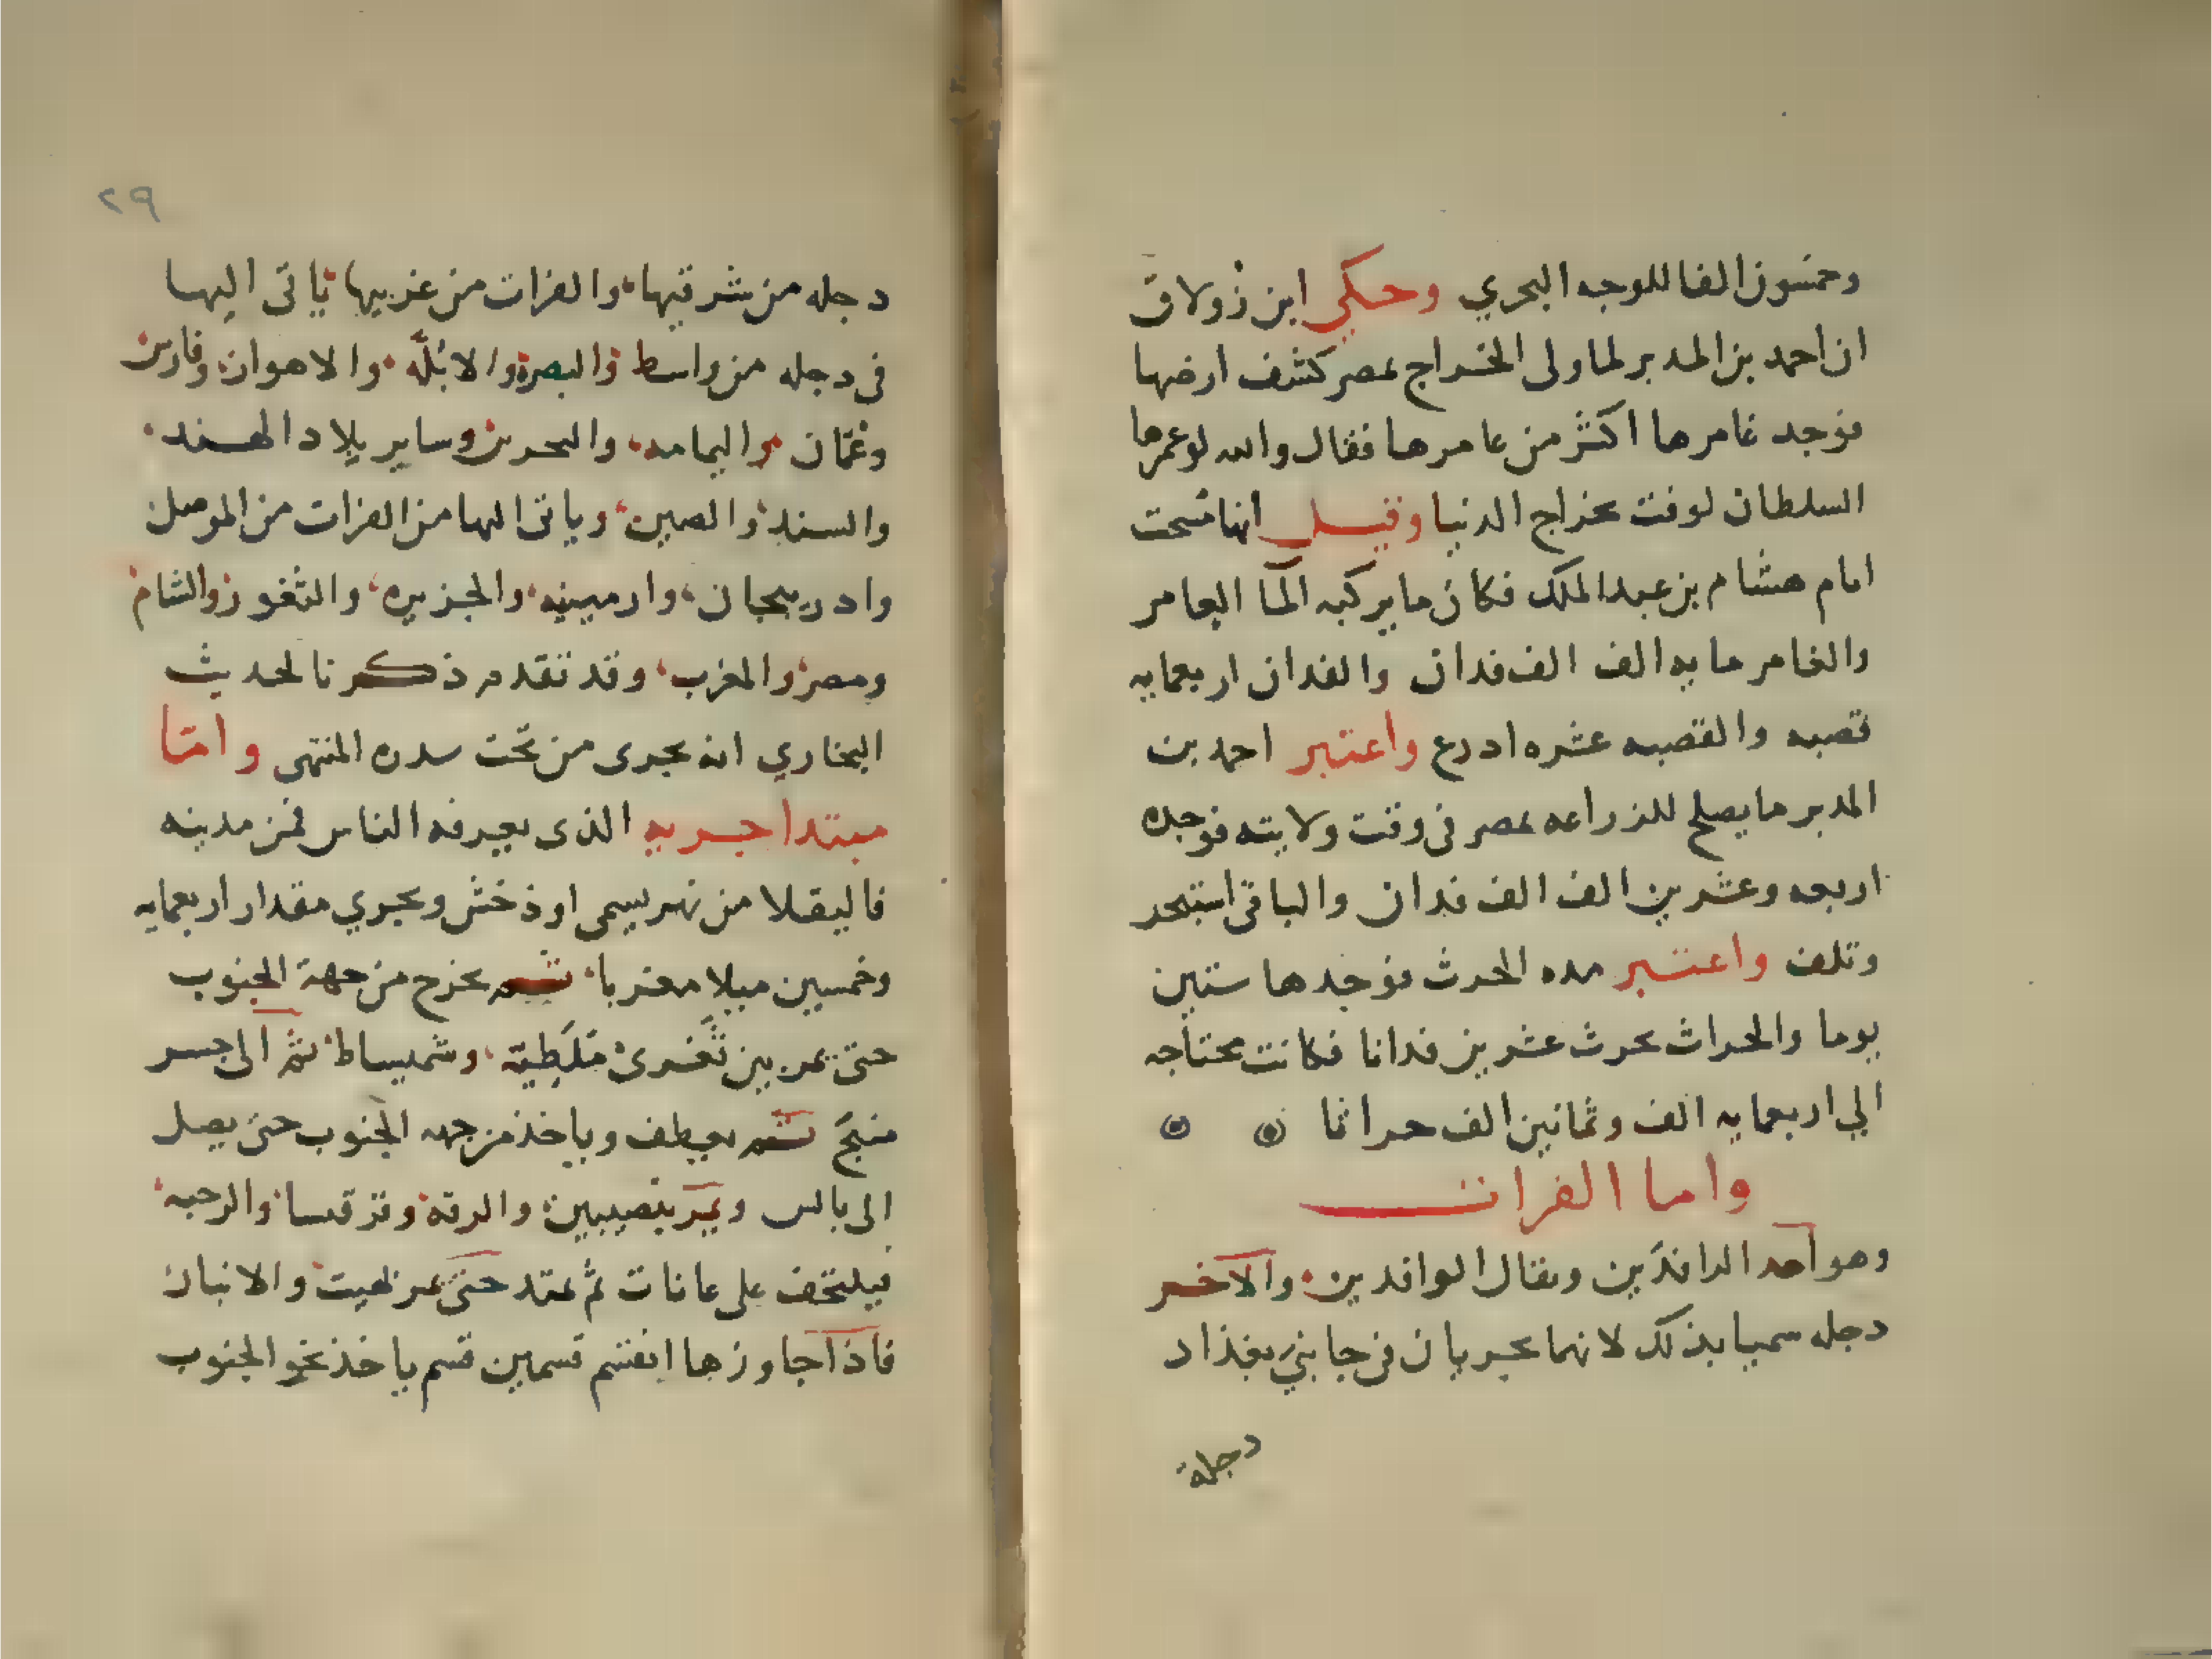 وخمسون الفا للوجه البحري وحكي ابن زولاق
ان احمد بن المدبر لما ولى الخراج بمصر كشف ارضها
فوجد غامرها اكثر من عامرها فقال والله لو عمرها
السلطان لوفت بخراج الدنيا وقيل انها مسحت
ايام هشام بن عبد الملك فكان ما يركبه الما العامر
والغامر مايه الف الف فدان والفدان اربعمايه
قصبه والقصبه عشره ادرع واعتبر احمد بن
المدبر ما يصلح للزراعه بمصر في وقت ولايته فوجده
اربعه وعشرين الف الف فدان والباقي استبحر
وتلف واعتبر مده الحرث فوجدها ستين
يوما والحراث يحرث عشرين فدانا فكانت محتاجه
الي اربعمايه الف وثمانين الف حراثا
واما الفرات
وهو احد الرافدين ويقال الوافدين والاخر
دجله سميا بذلك لانهما يجريان في جانبي بغداد
دجلة
٢٩
دجله من شرقيها والفرات من غربيها ياتى اليها
فى دجله من واسط والبصرة والابلّه والاهواز وفارس
وعمّان واليمامه والبحرين وساير بلاد الهند
والسند والصين وياتى اليها من الفرات من الموصل
وادربيجان وارمينيه والجزيره والثغور والشام
ومصر والمغرب وقد تقدم ذكرنا لحديث
البخاري انه يجرى من تحت سدره المنتهى وامّا
مبتدا جريه الذى يعرفه الناس فمن مدينه
قاليقلا من نهر يسمى اوذخش ويجري مقدار اربعمايه
وخمسين ميلا مغربا ثم يخرج من جهة الجنوب
حتى يمر بين ثغرى مَلَطِية وشميساط ثم الى جسر
منبج ثم يعطف وياخذ من جهه الجنوب حتى يصل
الى بالس ويمر بنصيبين والرقة وقرقيسا والرحبه
فيلتحف على عانات ثم يمتد حتى يمر بهيت والانبار
فاذا جاوزها انقسم قسمين قسم ياخذ نحو الجنوب